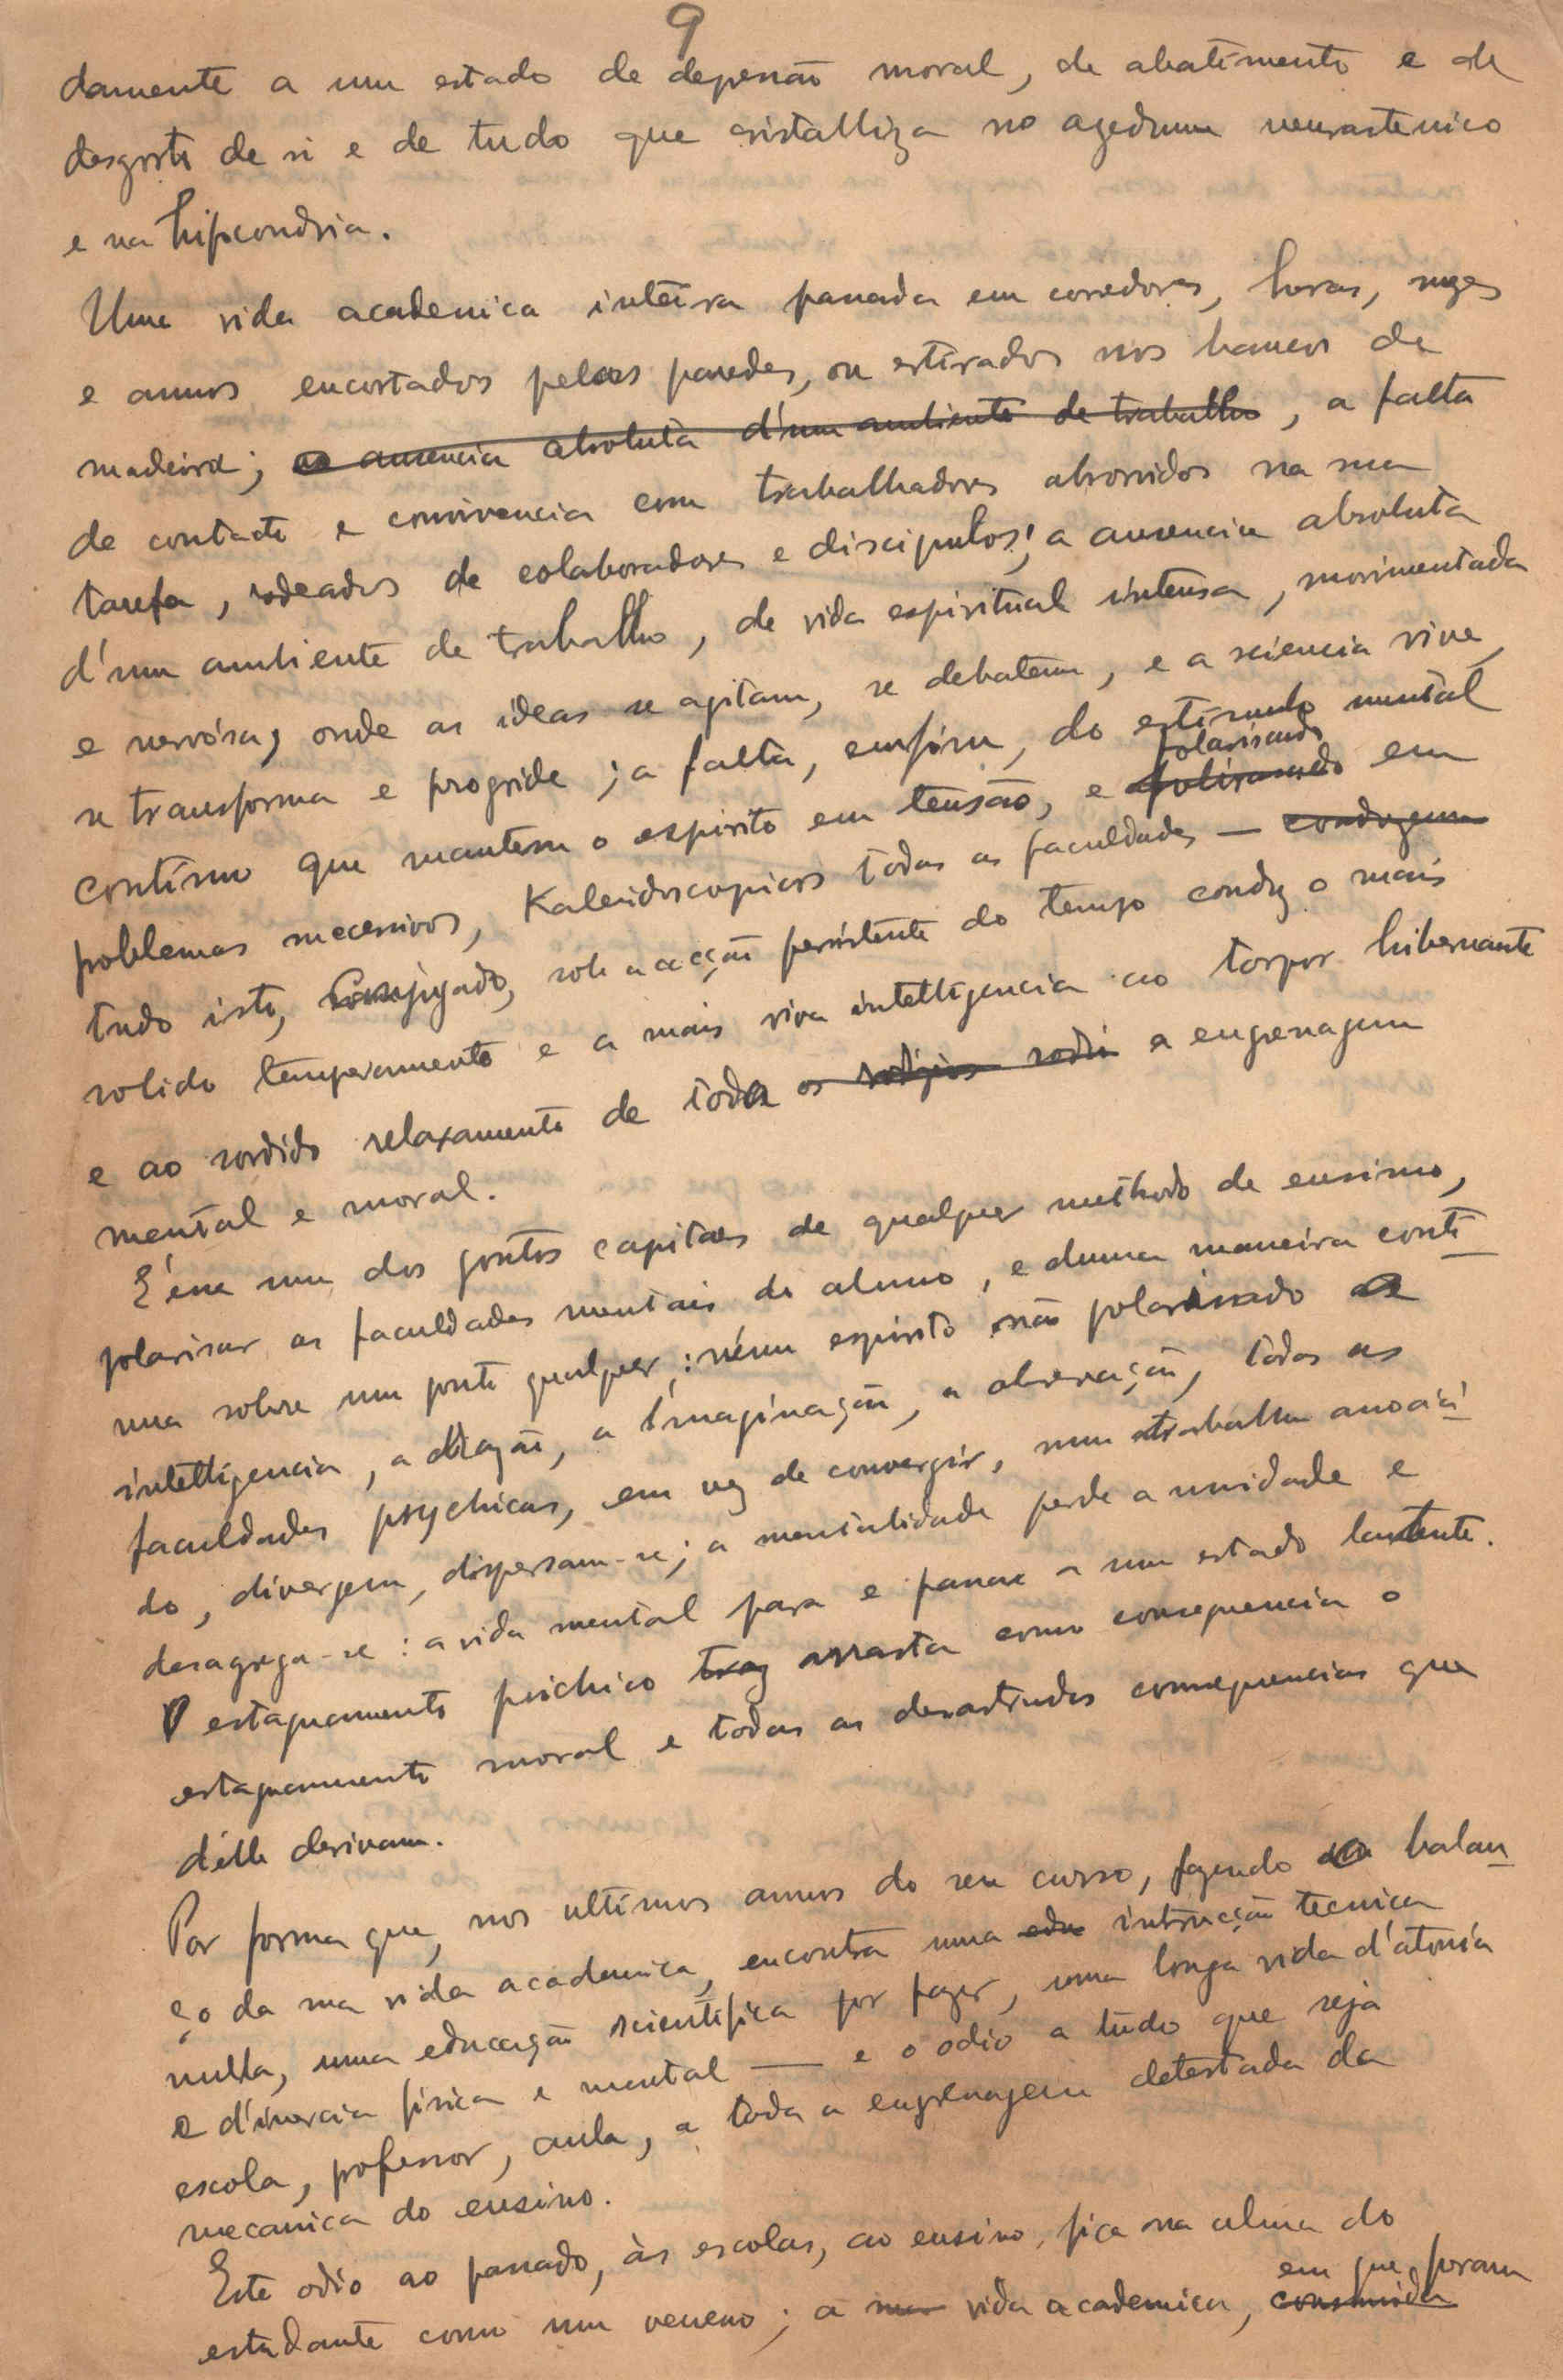 9
damente a um estado de depressão moral, de abatimento e de
desgosto de si e de tudo que cristalliza no azedume neurastenico
e na hipocondria.
Uma vida academica inteira passada em corredores, horas, mezes
e annos encostados pelas paredes, ou estirados nos bancos de
madeira; a ausencia absoluta d'um ambiente de trabalho, a falta
de contacto e convivencia com trabalhadores absorvidos na sua
tarefa, rodeados de colaboradores e discipulos; a ausencia absoluta
d'um ambiente de trabalho, de vida espiritual intensa, movimentada
e nervósa, onde as ideas se agitam, se debatem, e a sciencia vive,
se transforma e progride; a falta, emfim, do estimulo mental
polarisando
contínuo que mantem o espirito em tensão, e em
problemas sucessivos, Kaleidoscopicos todas as faculdades — conduzem
tudo isto, conjugado, sob a acção persistente do tempo conduz o mais
solido temperamento e a mais viva intelligencia ao torpor hibernante
e ao sordido relaxamento de toda os a engrenagem
mental e moral.
É esse um dos pontos capitaes de qualquer methodo de ensino,
polarisar as faculdades mentais do aluno, e duma maneira conti-
nua sobre um ponto qualquer; n'um espirito não polarisado a
intelligencia, a atenção, a imaginação, a observação, todas as
faculdades psychicas, em vez de convergir, num trabalho associa-
do, divergem, dispersam-se; a mentalidade perde a unidade e
desagrega-se: a vida mental para e passa a um estado latente.
O estagnamento psichico traz arrasta como consequencia o
estagnamento moral e todas as desastradas consequencias que
d'élle derivam.
Por forma que, nos ultimos annos do seu curso, fazendo o balan-
ço da sua vida academica, encontra uma edu intrucção tecnica
nulla, uma educação scientifica por fazer, uma longa vida d'atonía
e d'inercia fisica e mental — e o odio a tudo que seja
escola, professor, aula, a toda a engrenagem detestada da
mecanica do ensino.
Este odio ao passado, às escolas, ao ensino, fica na alma do
em que foram
estudante como um veneno; a sua vida academica, consumida